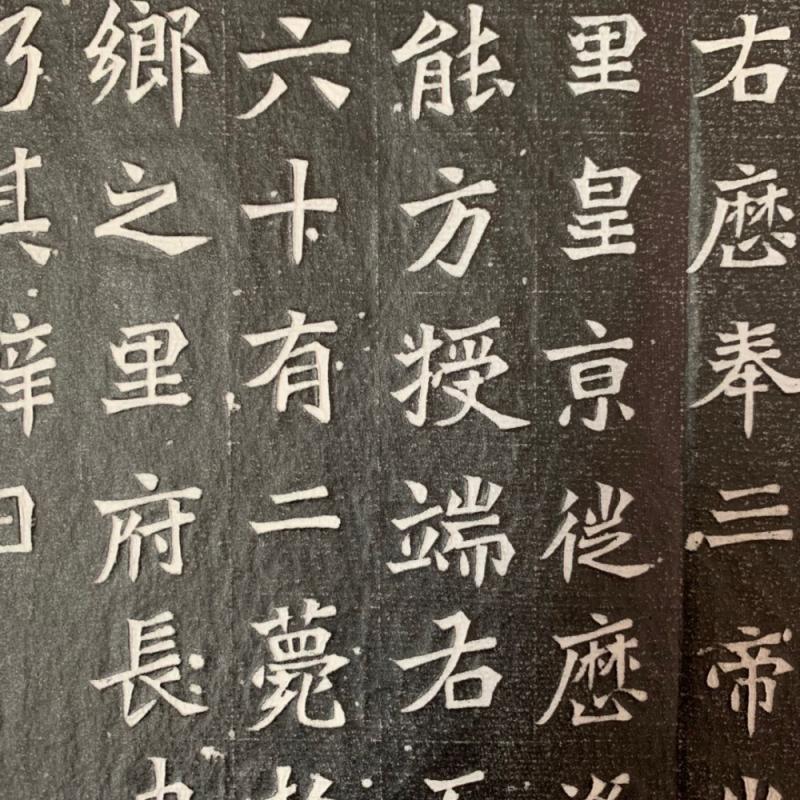 右歷奉三帝
里皇亰從歷
能方授端右
六十有二薨
鄉之里府長
乃其辭曰